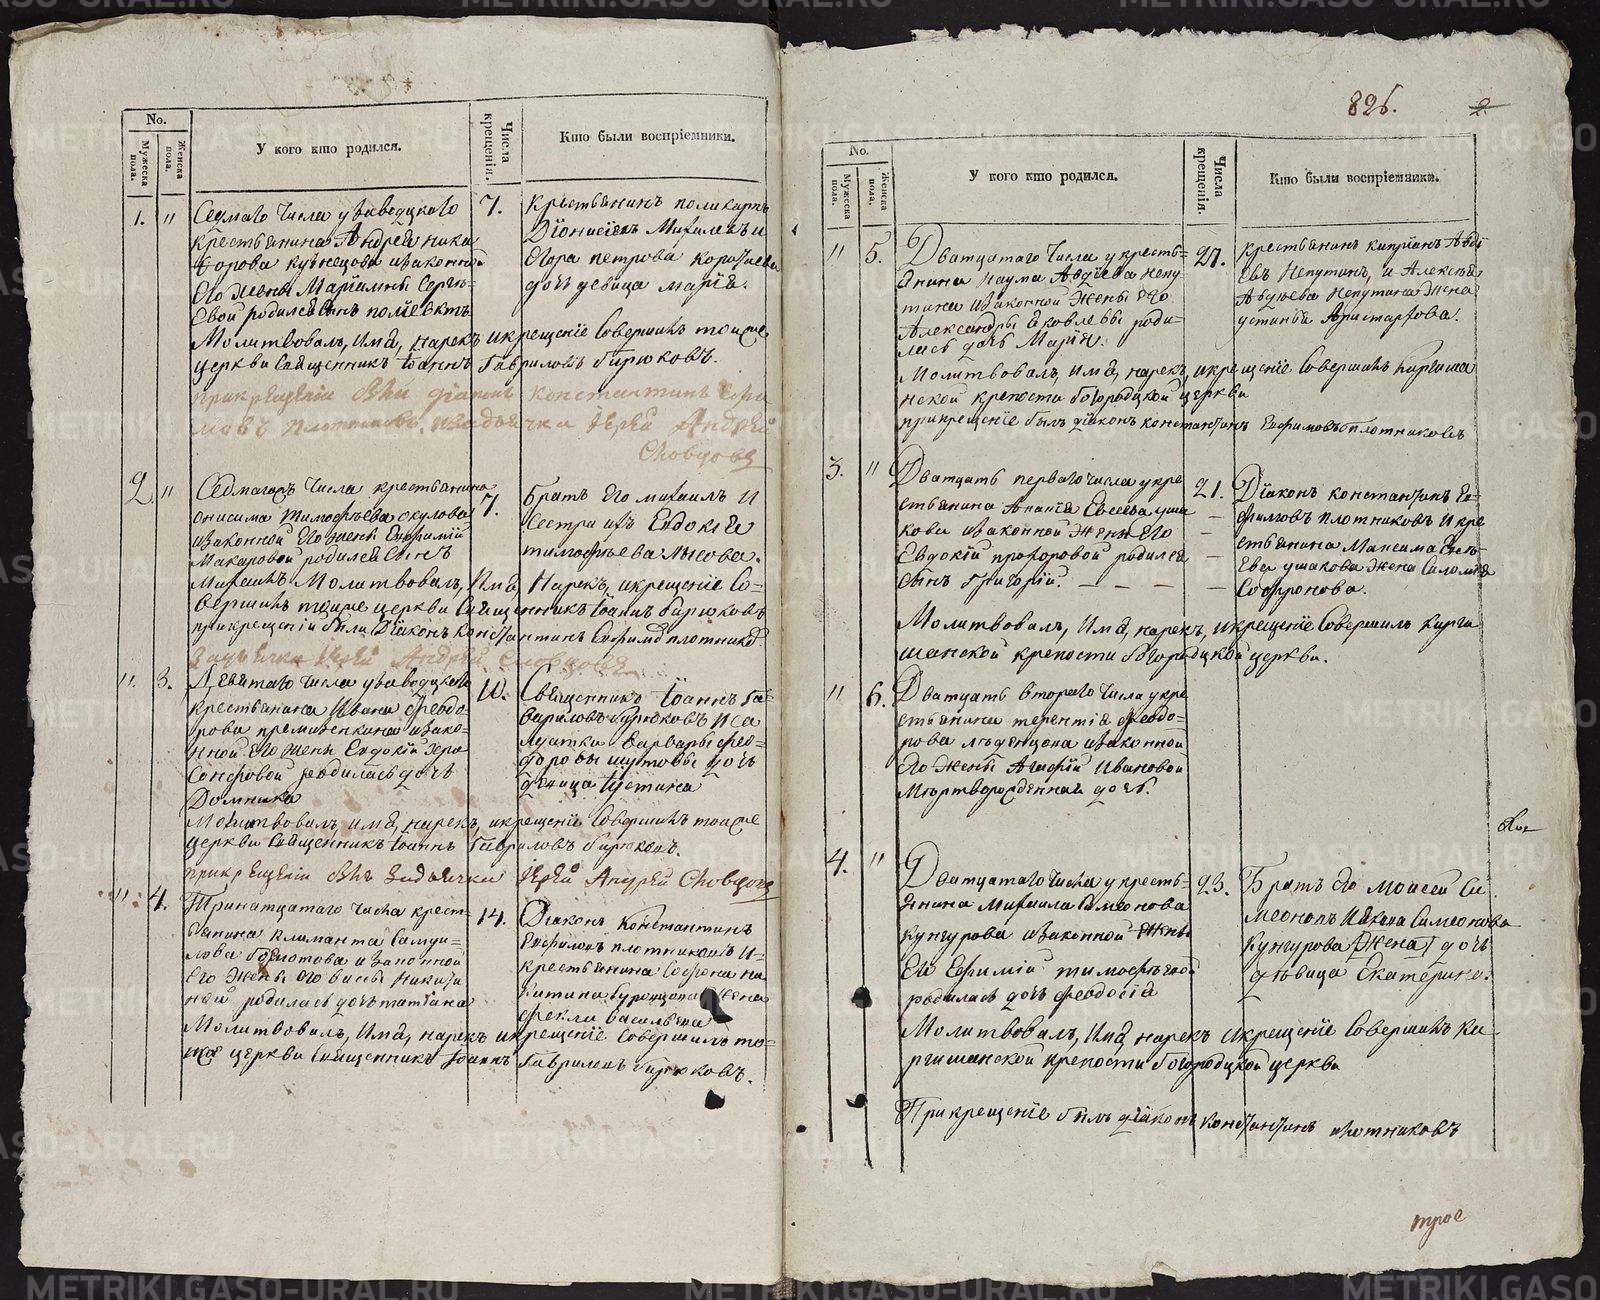 No.
Мужеска пола.
Женска пола.
У кого кто родился.
Числа крещенія.
Кто были воспріемники.
1. " Седмаго Числа у заводцкаго
крестьянина Андрея Ника
форова кузнецова изаконной
Его жены Маріамны Серге-
евой родился сынъ поліевктъ
7.
крестьянинъ поликарпъ
Діонисіевъ Михилевъ и
Егора петрова
дочь девица марія.
Молитвовалъ, имя, нарекъ и крещеніе Совершилъ тоиже
церкви Священникъ Іоаннъ Гавриловъ бирюковъ.
при крещеніи были діаконъ константинъ Ефи
мовъ плотниковъ. и задьячка Іерей Андрей
Словцовъ
2. " Седмагожъ Числа крестьянина
онисима Тимофѣева окулова
изаконной его жены Евфиміи
Макаровой родился Сынъ
7.
братъ Его михаилъ И
Сестра ихъ Евдокія
тимофѣева
Михаилъ Молитвовалъ, Имя, Нарекъ, икрещеніе Со-
вершилъ тоиже церкви Священникъ Іоаннъ бирюковъ
прикрещеніи были Діаконъ Константинъ Евфимовъ плотников.
Задьячка Іерей Андрей Словцовъ
" 3. Девятаго Числа узаводцкаго
крестьянина Ивана Феодо-
рова изако-
нной его жены Евдокіи Хера
Сонфовой родилась дочь
Домника
10.
Священникъ Іоаннъ Га-
вриловъ бирюковъ И Са
лдатки Варвары Фео-
доровы шутовы дочь
девица Іустина
Молитвовалъ, имя, нарекъ, икрещеніе Совершилъ тоиже
церкви Священникъ Іоаннъ Гавриловъ бирюковъ.
прикрещеніи былъ Задьячка Іерей Андрей Словцовъ
" 4. Тринатцатаго числа крест-
ьянина климанта Самуи-
лова болотова изаконной
Его жены его васы Никити
ной родилась дочь татіана
14.
Діаконъ Константинъ
Евфимовъ плотниковъ И-
крестьянина Софона на
китина бурондова жена
фекли васильева
Молитвовалъ, Имя, нарекъ икрещеніе Совершилъ то-
иже церкви Священникъ Іоаннъ Гавриловъ бирюковъ.
825.
2.
No.
Мужеска пола.
Женска пола.
У кого кто родился.
Числа крещенія.
Кто были воспріемники.
" 5. Дватцатаго Числа укресть-
янина Наума Авдіева Непу-
тина изаконной жены его
Александры яковлевы роди-
лась дочь Марія.
21.
крестьянинъ кипріянъ Авді
евъ Непутинъ, и Алексѣя
Авдѣева Непутина жена
устинья Аристархова.
Молитвовалъ, имя, нарекъ, икрещеніе Совершилъ киргиша
нской крепости богородцкой церкви
прикрещеніе былъ діаконъ константинъ Евфимовъ плотниковъ
3. " Дватцать перваго числа укре
стьянина Ананія Евсеева уша
кова изаконной жены его
Евдокіи прохоровой родился
сынъ Григорій.
21.
Діаконъ константинъ Ев-
фимовъ плотниковъ И кре
стьянина Максима
Ева ушакова жена Саломія
Софронова.
Молитвовалъ, Имя, нарекъ, икрещеніе Совершилъ кирги
шанской крепости богородцкой церкви.
" 6. Дватцать втораго числа укре
стьянина терентія Феодо-
рова изаконной
его жены Агафіи Ивановой
Мертворожденная дочь.
4. " Дватцатаго Числа укресть-
янина Михаила Симеонова
Кунгурова изаконной жены
Его Евфиміи тимофѣевой
родилась дочь Феодосія
23.
Братъ его Моисей Си
меоновъ Ивана Симеонова
кунгурова [жена] дочь
дѣвица Екатерина.
Молитвовалъ, Имя, нарекъ икрещеніе Совершилъ Ки-
ргишанской крепости богородцкой церкви
Прикрещеніе былъ діаконъ константинъ плотниковъ
трое
METRIKI.GASO-URAL.RU